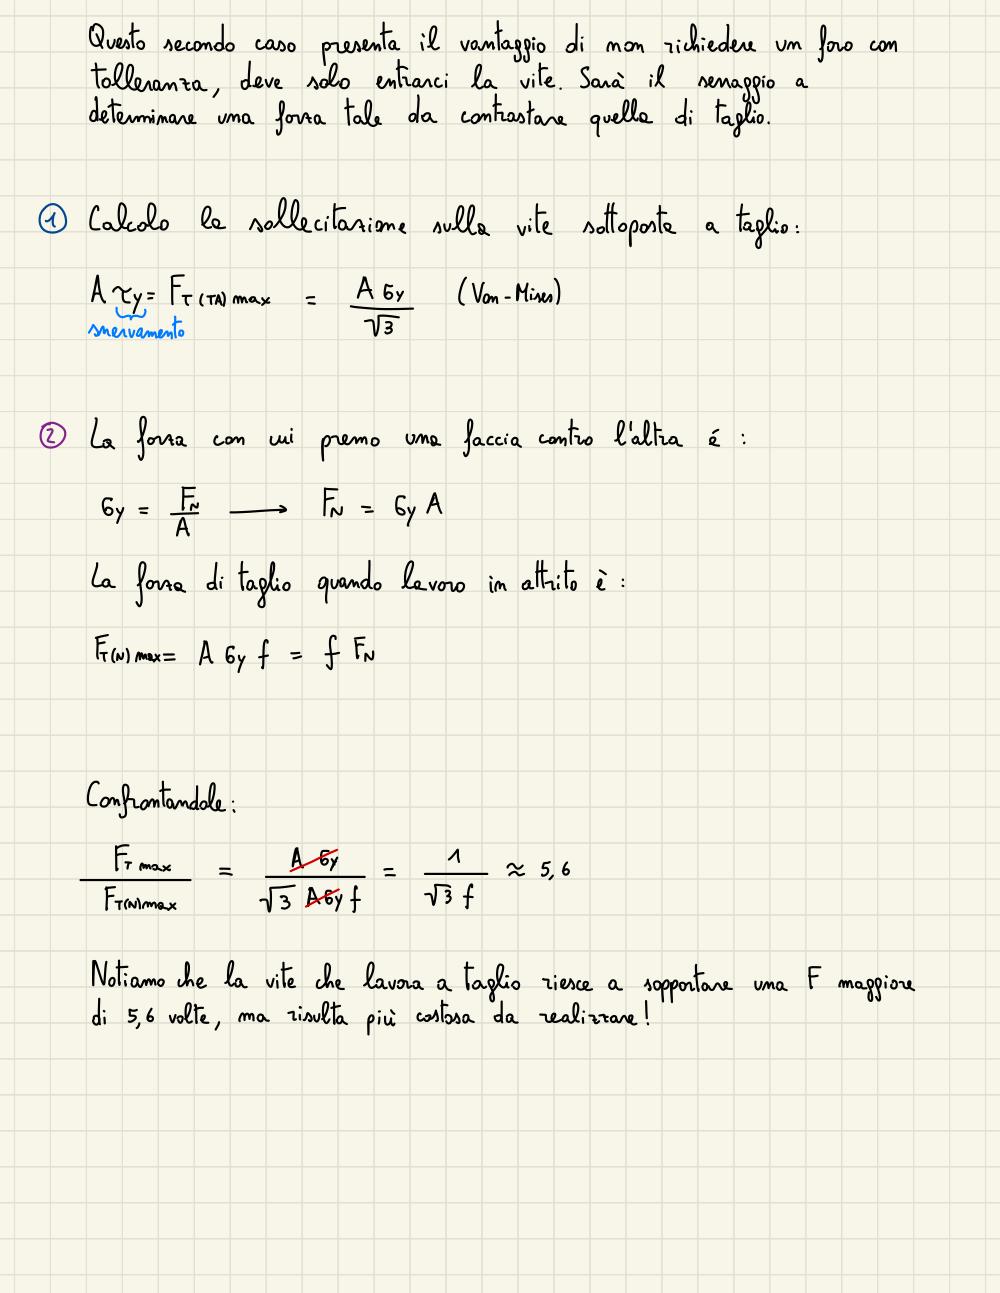 Questo secondo caso presenta il vantaggio di non richiedere un foro con
tolleranza, deve solo entrarci la vite. Sarà il serraggio a
determinare una forza tale da contrastare quella di taglio.
① Calcolo la sollecitazione sulla vite sottoposta a taglio:
A τy = F_T(TA) max = A σy / √3 (Von-Mises)
snervamento
② La forza con cui premo una faccia contro l'altra é :
σy = F_N / A ⟶ F_N = σy A
La forza di taglio quando lavoro in attrito è :
F_T(N) max = A σy f = f F_N
Confrontandole:
F_T max / F_T(N) max = A σy / √3 A σy f = 1 / √3 f ≈ 5,6
Notiamo che la vite che lavora a taglio riesce a sopportare una F maggiore
di 5,6 volte, ma risulta più costosa da realizzare!